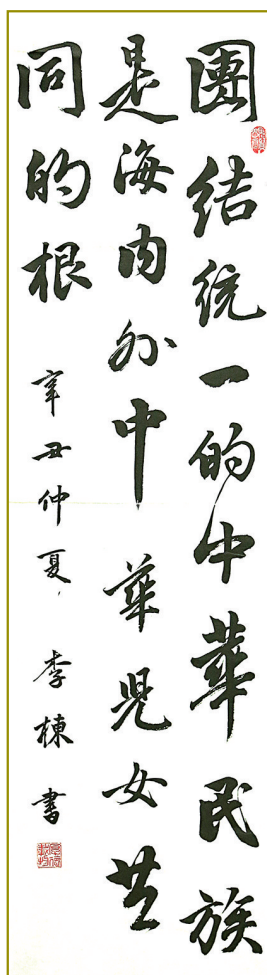 團结统一的中華民族
是海内外中華児女共
同的根
辛丑仲夏，李棟書